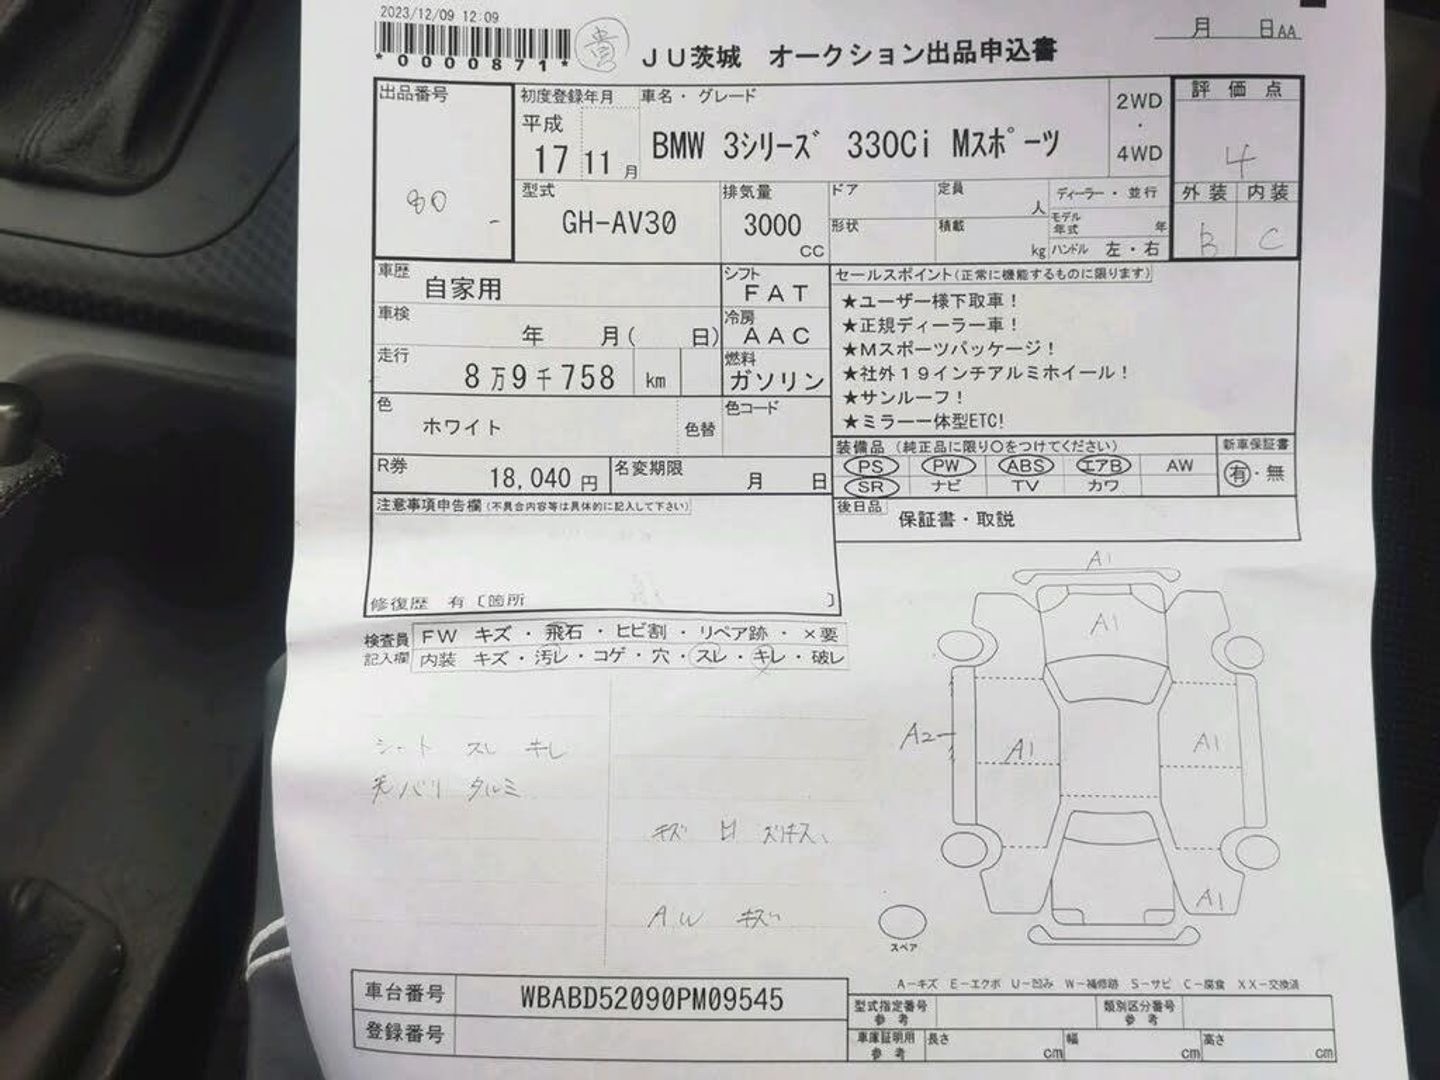 2023/12/09 12:09
*0000871*
貴
JU茨城 オークション出品申込書
月 日AA
出品番号
80 -
初度登録年月
平成
17 11月
車名・グレード
BMW 3シリーズ 330Ci Mスポーツ
2WD
・
4WD
評価点
4
外装 内装
B C
型式
GH-AV30
排気量
3000
CC
ドア
形状
定員
人
積載
kg
ディーラー・並行
モデル年式 年
ハンドル 左・右
車歴
自家用
シフト
FAT
車検
年 月( 日)
冷房
AAC
走行
8万9千758 km
燃料
ガソリン
色
ホワイト
色替
色コード
R券
18,040円
名変期限
月 日
セールスポイント(正常に機能するものに限ります)
★ユーザー様下取車!
★正規ディーラー車!
★Mスポーツパッケージ!
★社外19インチアルミホイール!
★サンルーフ!
★ミラー一体型ETC!
装備品 (純正品に限り○をつけてください)
PS PW ABS エアB AW
SR ナビ TV カワ
新車保証書
有・無
後日品
保証書・取説
注意事項申告欄(不具合内容等は具体的に記入して下さい)
修復歴 有〔箇所 〕
検査員記入欄
FW キズ・飛石・ヒビ割・リペア跡・×要
内装 キズ・汚レ・コゲ・穴・スレ・キレ・破レ
シート スレ キレ
天バリ タルミ
AW キズ
A1
A1
A2
A1
A1
A1
スペア
A-キズ E-エクボ U-凹み W-補修跡 S-サビ C-腐食 XX-交換済
車台番号
WBABD52090PM09545
登録番号
型式指定番号
参考
類別区分番号
参考
車庫証明用
参考
長さ cm
幅 cm
高さ cm